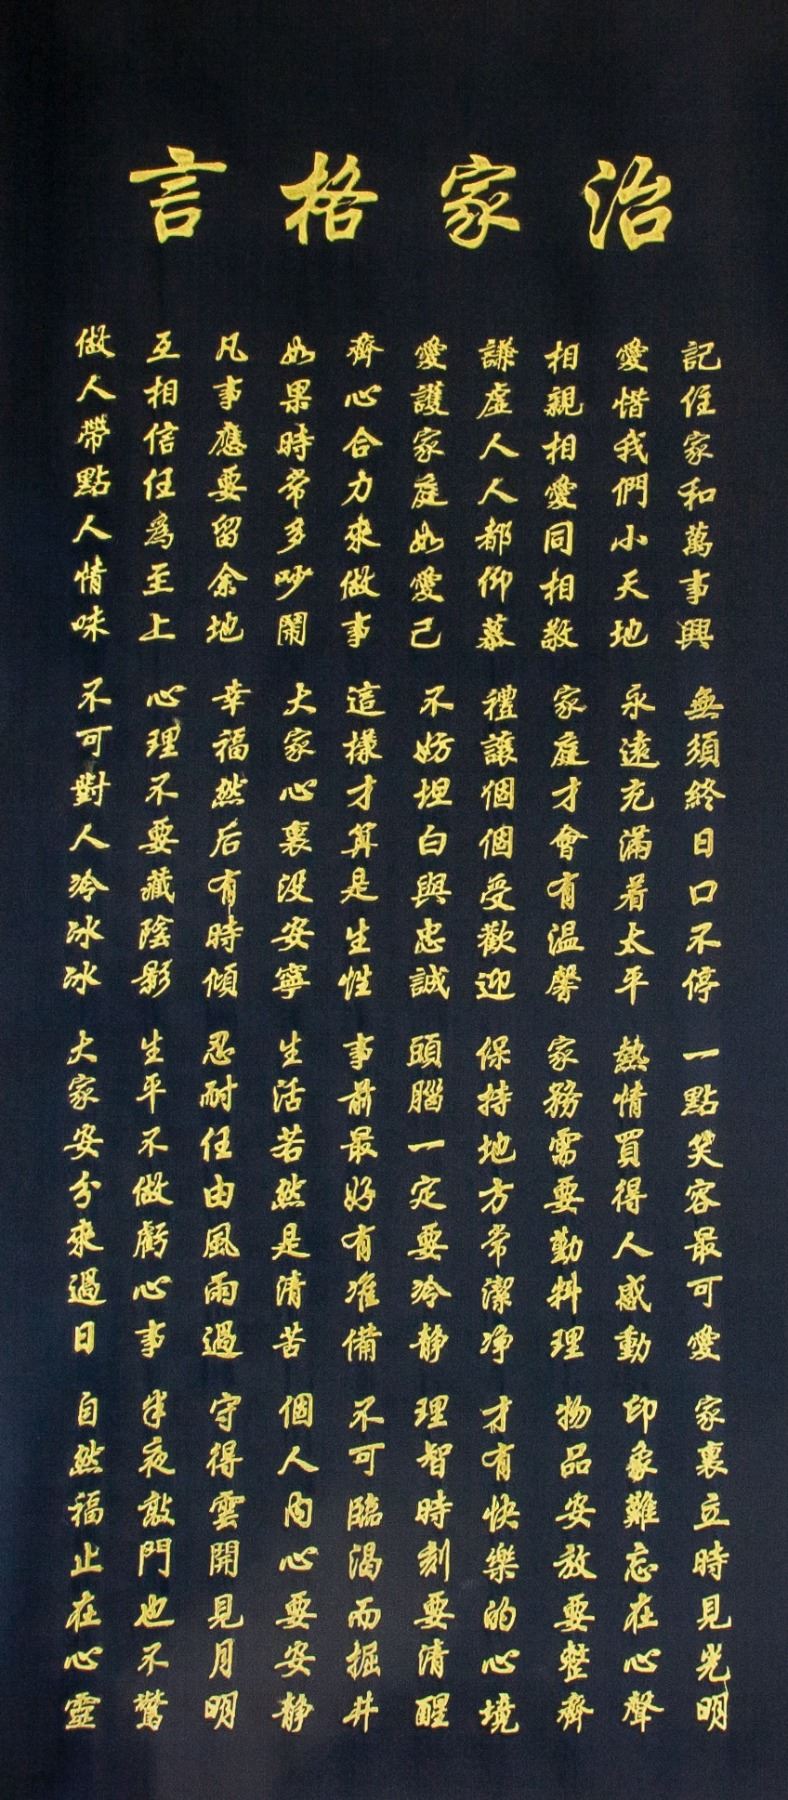 治家格言
記住家和萬事興 無須終日口不停 一點笑容最可愛 家裏立時見光明
愛惜我們小天地 永遠充滿着太平 熱情買得人感動 印象難忘在心聲
相親相愛同相敬 家庭才會有温馨 家務需要勤料理 物品安放要整齊
謙虛人人都仰慕 禮讓個個受歡迎 保持地方常潔净 才有快樂的心境
愛護家庭如愛己 不妨坦白與忠誠 頭腦一定要冷静 理智時刻要清醒
齊心合力來做事 這樣才算是生性 事前最好有准備 不可臨渴而掘井
如果時常多吵鬧 大家心裏没安寧 生活若然是清苦 個人內心要安静
凡事應要留余地 幸福然后有時傾 忍耐任由風雨過 守得雲開見月明
互相信任為至上 心理不要藏陰影 生平不做虧心事 半夜敲門也不驚
做人帶點人情味 不可對人冷冰冰 大家安分來過日 自然福止在心靈